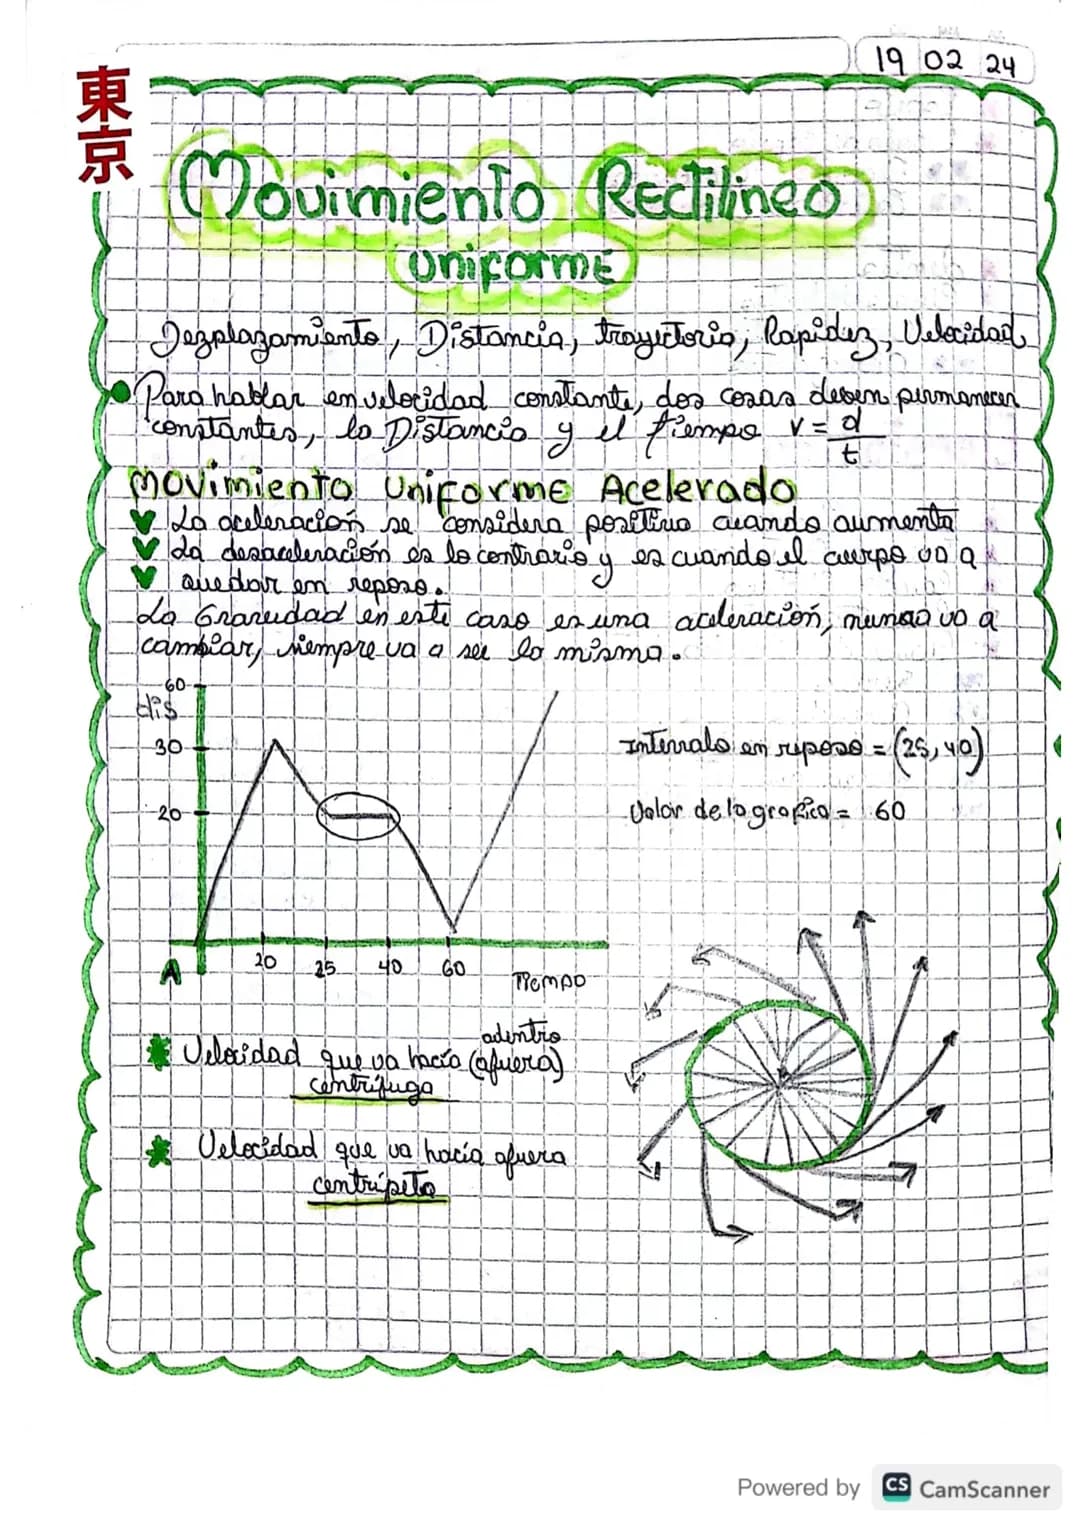 19 02 24
東京
Movimiento Rectilineo
uniforme
Dezplazamiento, Distancia, trayectoria, Rapidez, Velocidad
Para hablar en velocidad constante, dos cosas deben permanecer
constantes, la Distancia y el tiempo v = d
t
Movimiento Uniforme Acelerado
La aceleración se considera positiva cuando aumenta
La desaceleración es lo contrario y es cuando el cuerpo va a
quedar en reposo.
La Gravedad en este caso es una aceleración, nunca va a
cambiar, siempre va a ser la misma.
60
dis
30
20
A
20 25 40 60 Tiempo
Intervalo en reposo = (25, 40)
Valor de la grafica = 60
adentro
Velocidad que va hacia (afuera)
centrifuga
Velocidad que va hacia afuera
centripeta
Powered by CS CamScanner